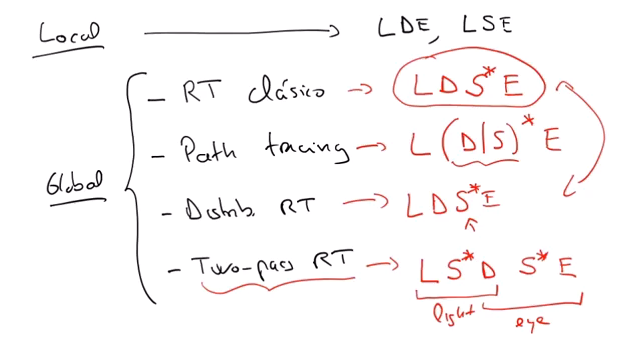 Local LDE, LSE
Global
- RT clásico → LDS*E
- Path tracing → L(D|S)*E
- Distrib. RT → LDS*E
- Two-pass RT → LS*D S*E
light eye